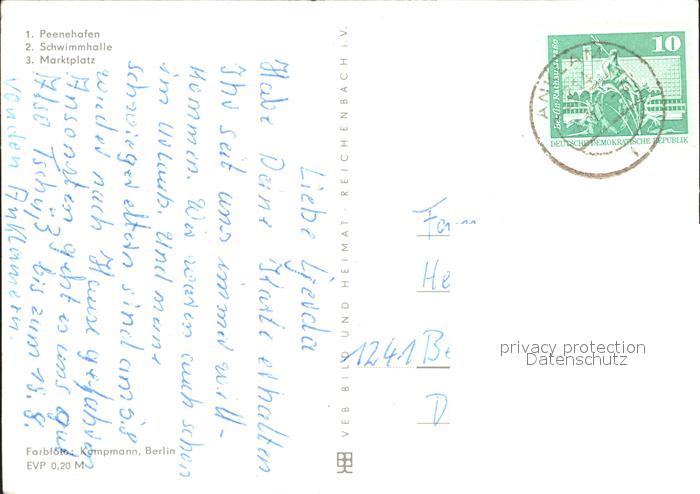 1. Peenehafen
2. Schwimmhalle
3. Marktplatz
Liebe Gerda
Habe Deine Karte erhalten
Ihr seit uns immer will-
kommen. Wir waren auch schon
im Urlaub. Und meine
schwiegereltern sind am 5.8
wieder nach Hause gefahren
Ansonsten geht es uns gut
Also Tschüß bis zum 15.8.
von den Anklamern.
Farbfoto: Kampmann, Berlin
EVP 0,20 M
VEB BILD UND HEIMAT REICHENBACH i. V.
10
Berlin, Rathausstraße
DEUTSCHE DEMOKRATISCHE REPUBLIK
ANKLAM
Fam
He
1241 Be
D
privacy protection
Datenschutz